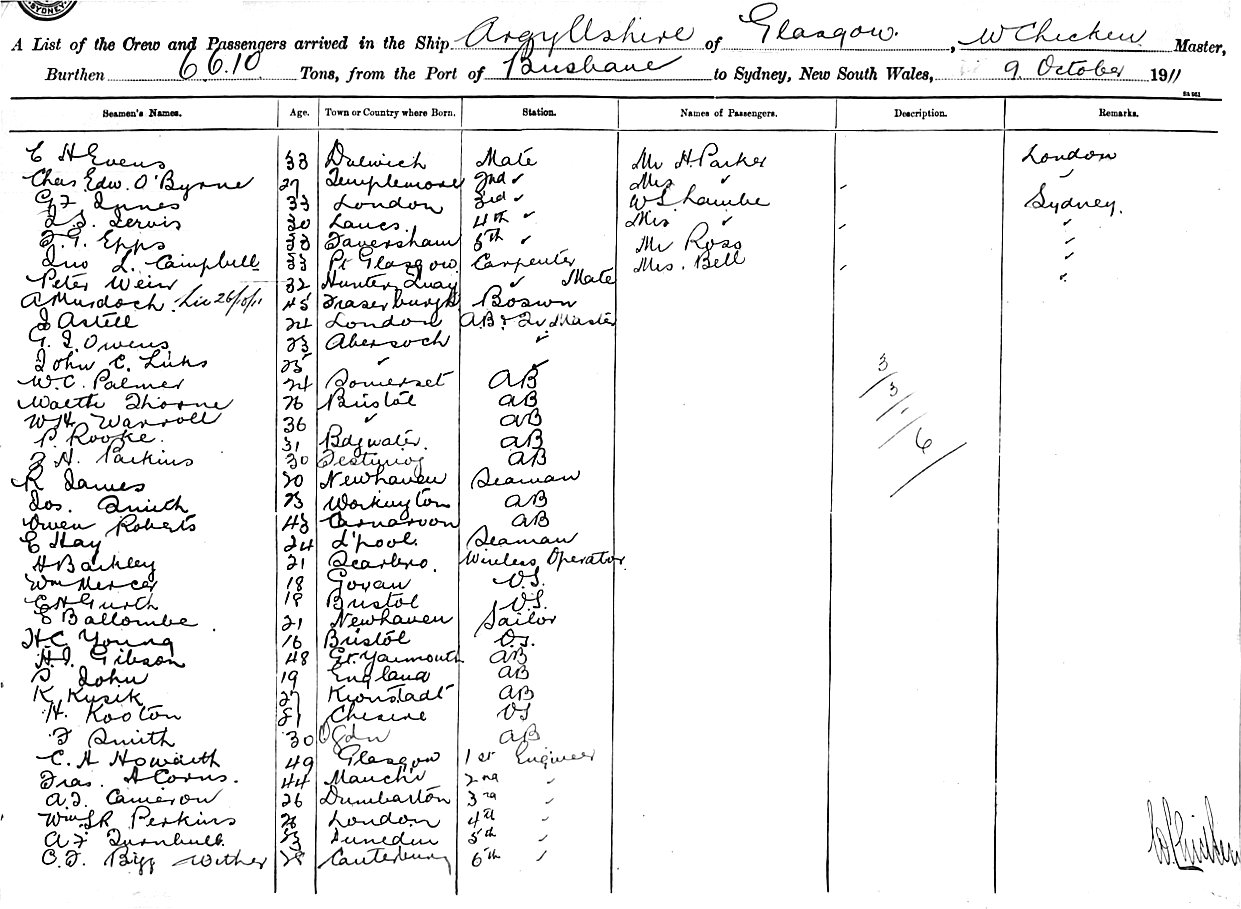 SYDNEY
A List of the Crew and Passengers arrived in the Ship Argyllshire of Glasgow, W Chicken Master,
Burthen 6610 Tons, from the Port of Brisbane to Sydney, New South Wales, 9 October 1911
Seamen's Names. Age. Town or Country where Born. Station. Names of Passengers. Description. Remarks.
E H Evens 33 Dulwich Mate Mr H Parker London
Chas Edw. O'Byrne 27 Templemore 2nd " Mrs " "
G F Innes 33 London 3rd " W S Lambe Sydney.
Jervis 30 Lancs. 4th " Mrs " "
Epps 33 Faversham 5th " Mr Ross "
Jno L. Campbell 33 Pt Glasgow Carpenter Mrs. Bell "
Peter Weir 32 Hunter Quay " Mate "
A Murdoch 45 Fraserburgh Boswn
J Astell 24 London AB & Qr Master
Owens 23 Abersoch "
John C. 25 " "
W.C. Palmer 24 Somerset AB
Thorne 26 Bristol AB
W H 36 " AB
P. Rooke. 31 Bdgwater. AB
H. Parkins 30 AB
R James 20 Newhaven Seaman
Jos. Smith 23 Workington AB
Owen Roberts 43 Carnarvon AB
E Hay 24 L'pool. Seaman
H Barkley 21 Scarbro. Wireless Operator
Wm Mercer 18 Govan O.S.
18 Bristol O.S.
E Ballombe 21 Newhaven Sailor
H C Young 16 Bristol O.S.
Gibson 48 Gt. Yarmouth AB
John 19 England AB
K Kysik 27 Kronstadt AB
H. Kooton 21 OS
F Smith 30 Ogdn AB
C. A Howarth 49 Glasgow 1st Engineer
Fras. A Corns. 44 Manch'r 2nd "
A.J. Cameron 26 Dumbarton 3rd "
Perkins London 4th "
A F Turnbull 23 Dunedin 5th "
Bigg Wither 28 Canterbury 6th "
3/3/1/6
W Chicken